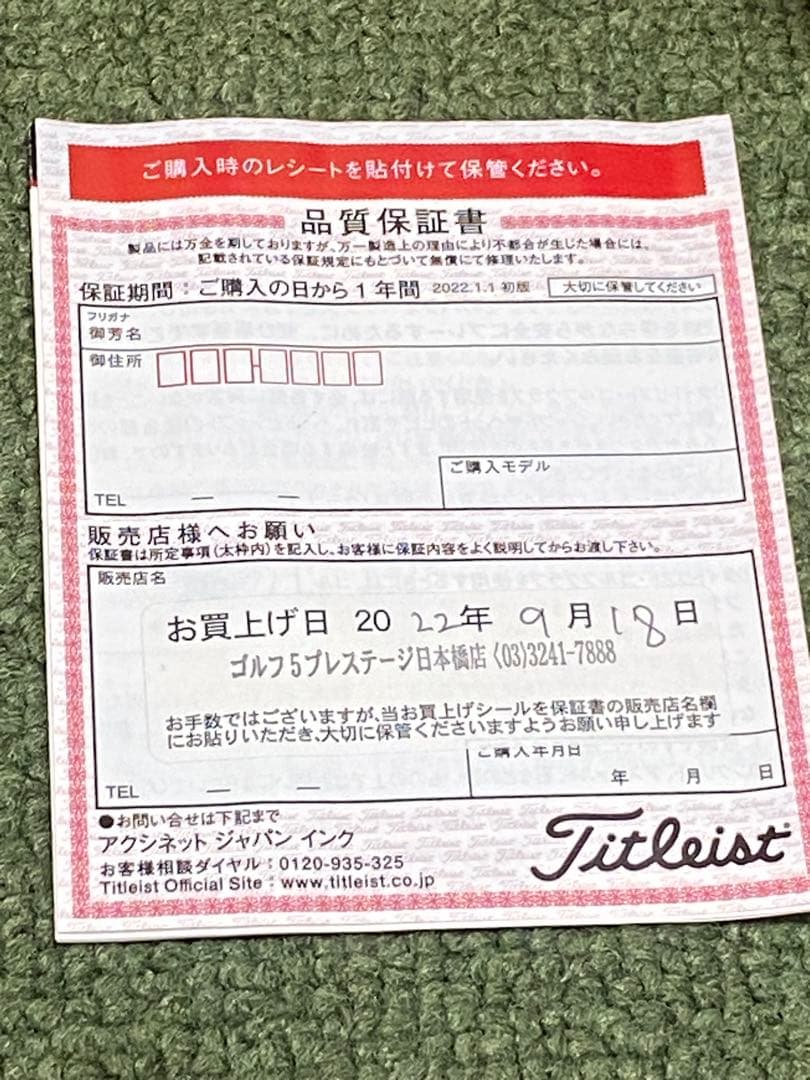 ご購入時のレシートを貼付けて保管ください。
品質保証書
製品には万全を期しておりますが、万一製造上の理由により不都合が生じた場合には、
記載されている保証規定にもとづいて無償にて修理いたします。
保証期間：ご購入の日から1年間 2022.1.1 初版 大切に保管してください
フリガナ
御芳名
御住所
ご購入モデル
TEL — —
販売店様へお願い
保証書は所定事項(太枠内)を記入し、お客様に保証内容をよく説明してからお渡し下さい。
販売店名
お買上げ日 2022年 9月18日
ゴルフ5プレステージ日本橋店 〈03〉3241-7888
お手数ではございますが、当お買上げシールを保証書の販売店名欄
にお貼りいただき、大切に保管くださいますようお願い申し上げます
ご購入年月日
TEL — — 年 月 日
●お問い合せは下記まで
アクシネット ジャパン インク
お客様相談ダイヤル：0120-935-325
Titleist Official Site：www.titleist.co.jp
Titleist